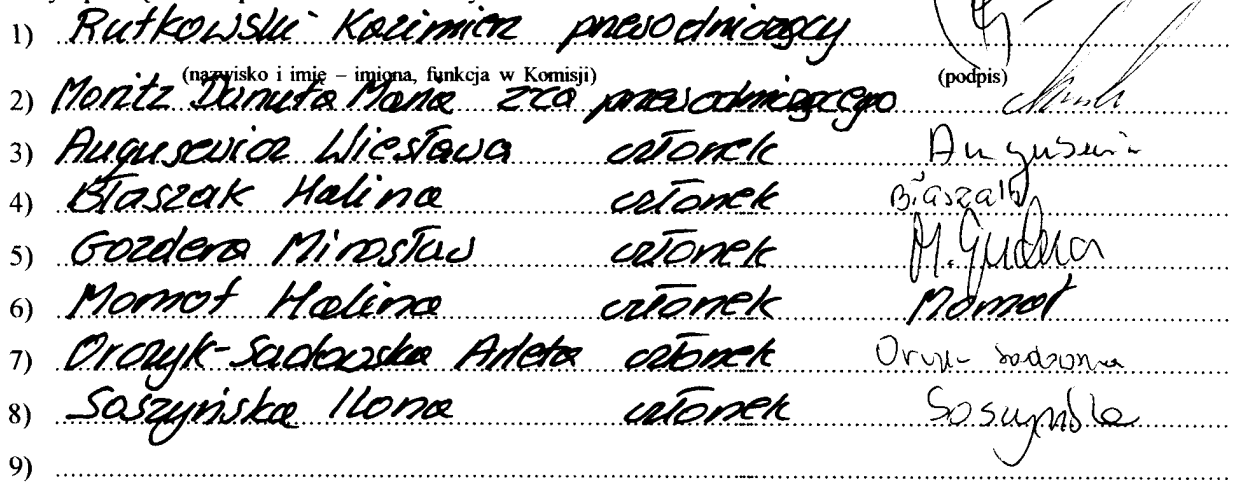 1) Rutkowski Kazimierz przewodniczący
(nazwisko i imię – imiona, funkcja w Komisji) (podpis)
2) Moritz Danuta Maria z-ca przewodniczącego
3) Augusewicz Wiesława członek
4) Błaszak Halina członek Błaszak
5) Gozdera Mirosław członek M. Gozdera
6) Momot Halina członek Momot
7) Orczyk-Sadowska Arleta członek
8) Soszyńska Ilona członek Soszyńska
9)